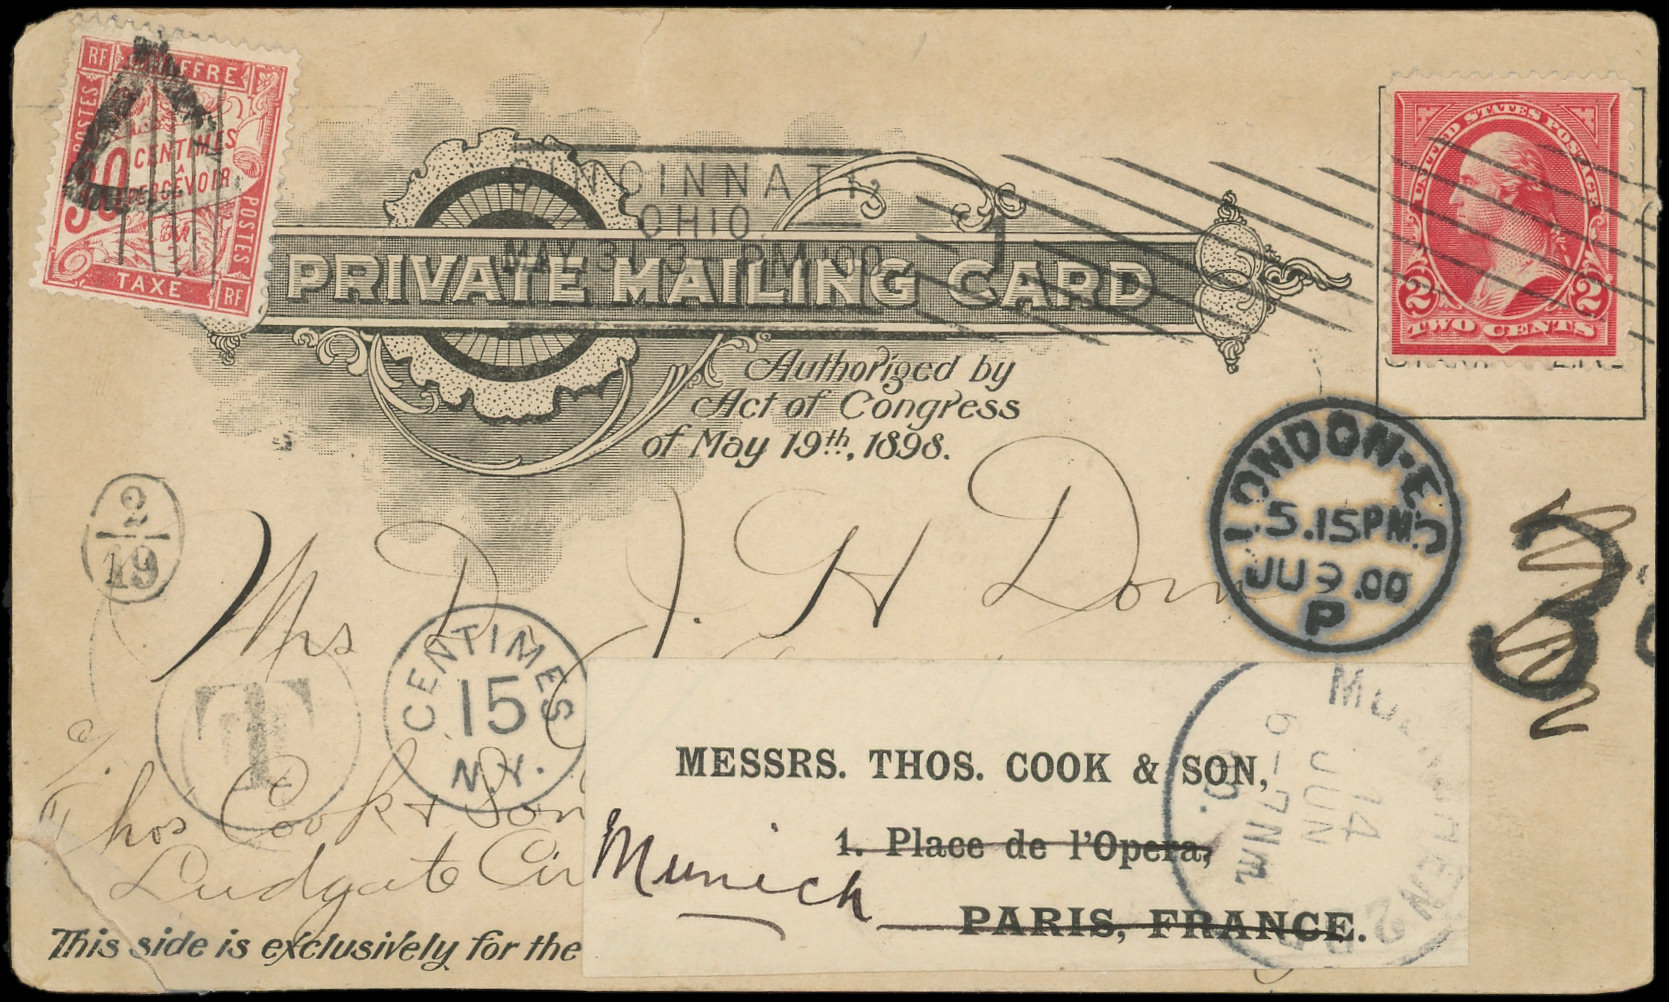 RF CHIFFRE
POSTES
30 CENTIMES
A
PERCEVOIR
POSTES
TAXE RF
CINCINNATI,
OHIO.
MAY 31 3 - PM '00
UNITED STATES POSTAGE
2 2
TWO CENTS
PRIVATE MAILING CARD
Authorized by
Act of Congress
of May 19th, 1898.
LONDON·E.C
5.15PM
JU 9 .00
P
2
19
30
Mrs D. J. H Dom
T
CENTIMES
15
N.Y.
c/o
Thos Cook & Son
Ludgate Cir
MESSRS. THOS. COOK & SON,
1. Place de l'Opera,
Munich
PARIS, FRANCE.
MUENCHEN 2
14
JUN
6-7 Nm
00.
This side is exclusively for the